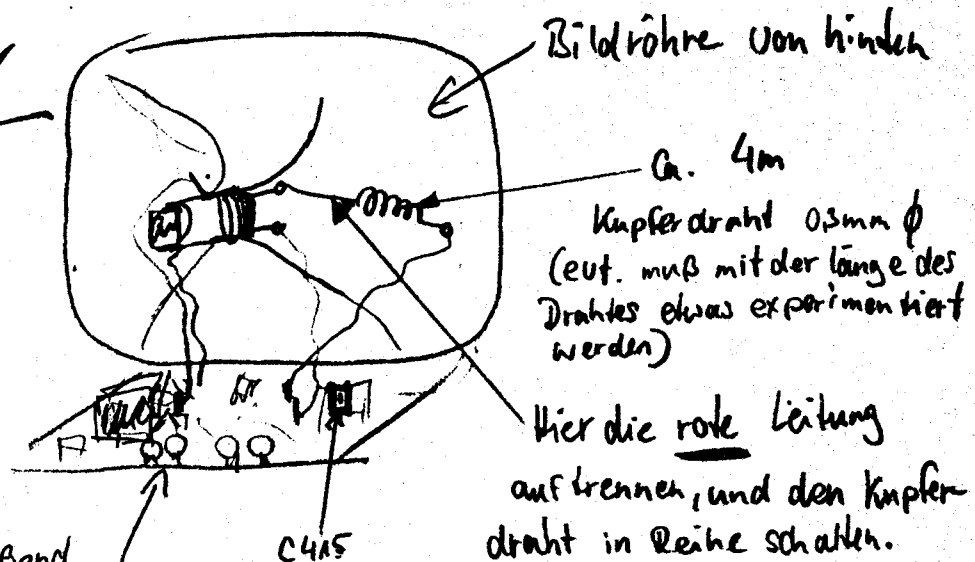 Bildröhre von hinten
Ca. 4m
Kupferdraht 0,3mm ϕ
(evt. muß mit der länge des
Drahtes etwas experimentiert
werden)
Hier die rote Leitung
auftrennen, und den Kupfer-
draht in Reihe schalten.
C415
Band